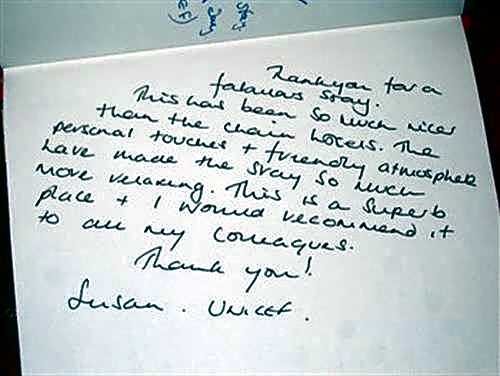 Thankyou for a
fabulous stay.
This has been so much nicer
than the chain hotels. The
personal touches + friendly atmosphere
have made the stay so much
more relaxing. This is a superb
place + I would recommend it
to all my colleagues.
Thank you!
Susan. UNICEF.